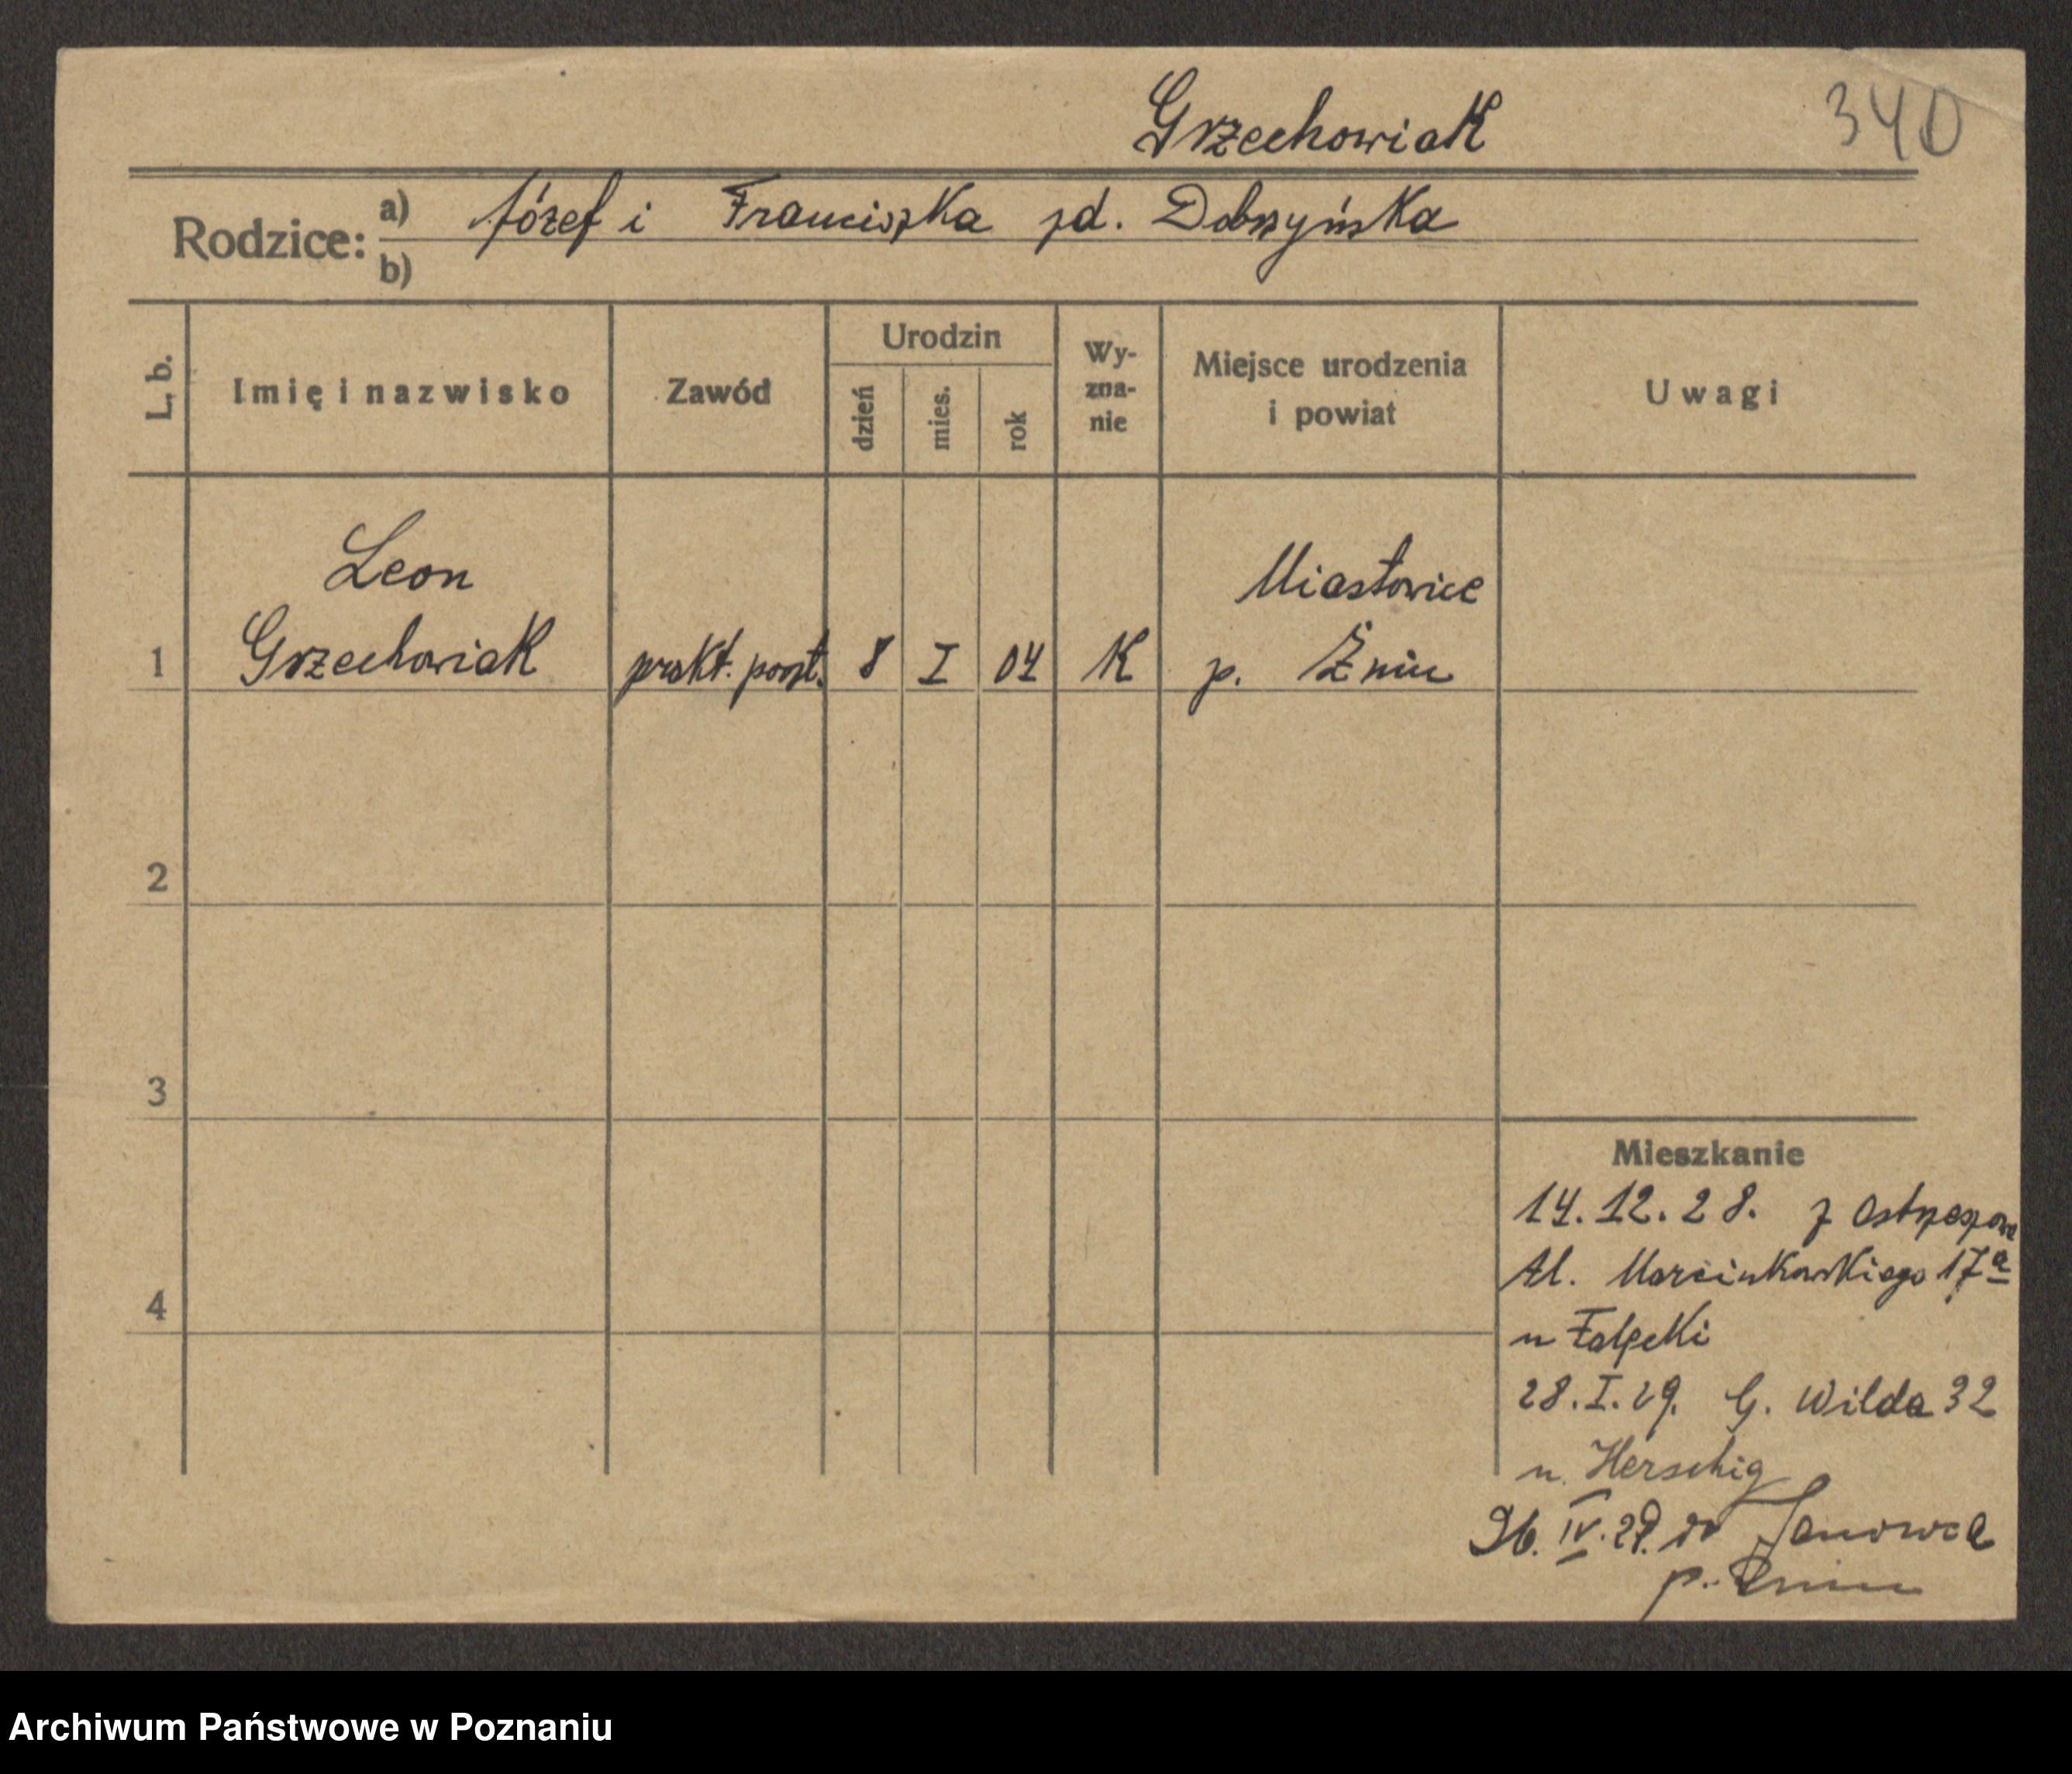 Grzechowiak
340
Rodzice: a) Józef i Franciszka zd. Dobrzyńska
b)
L. b.
Imię i nazwisko
Zawód
Urodzin
dzień
mies.
rok
Wy-
zna-
nie
Miejsce urodzenia
i powiat
Uwagi
Leon
Miastowice
1 Grzechowiak prakt. poczt. 8 I 04 K p. Żnin
2
3
4
Mieszkanie
14.12.28. z
Al. Marcinkowskiego 17a
u
28.I.29. G. Wilda 32
u. Herschig
26. IV. 29. do Janowca
p. Żnin
Archiwum Państwowe w Poznaniu